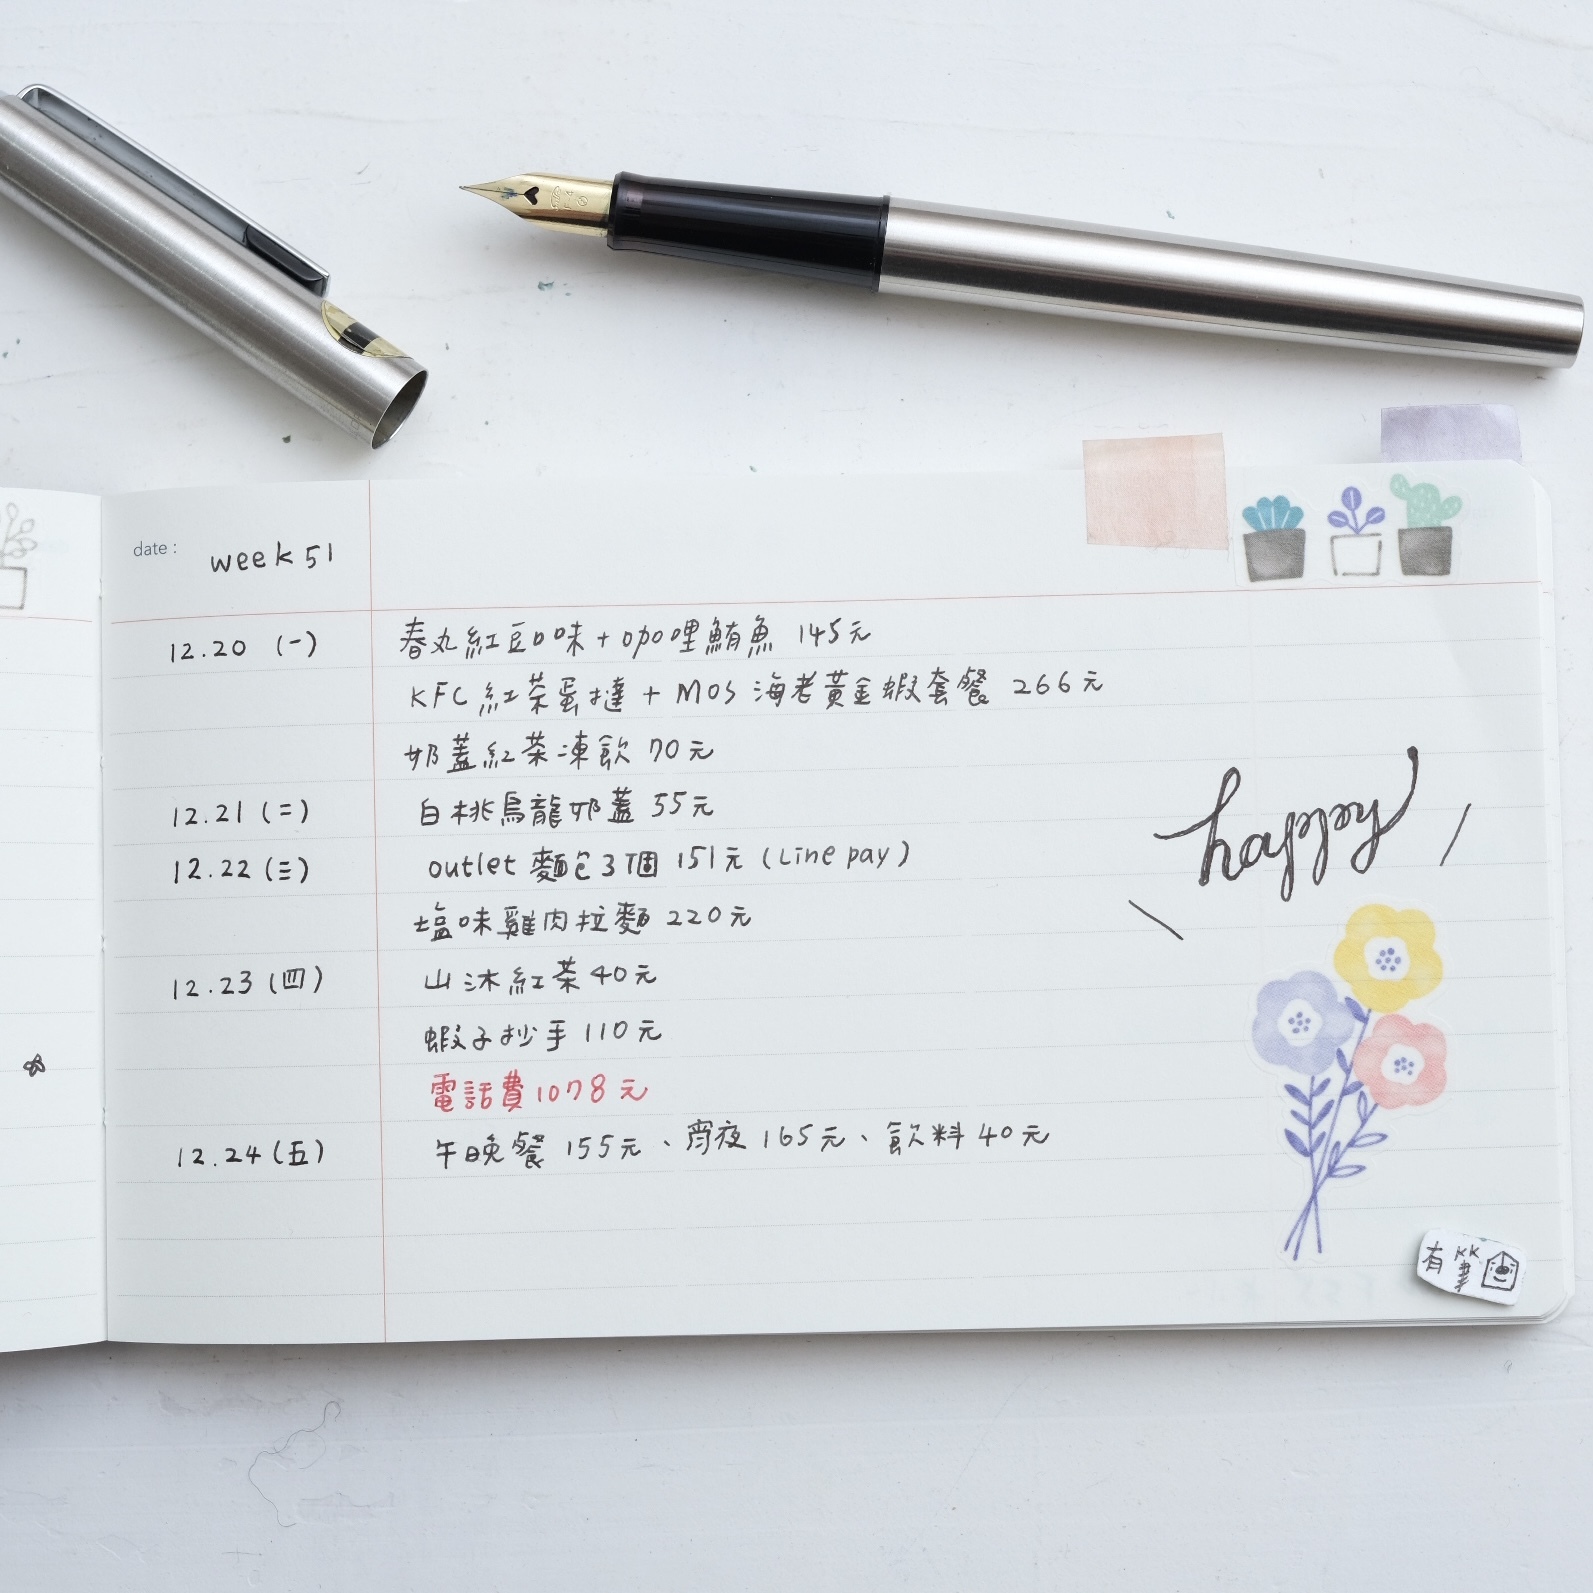 date :
week 51
12.20 (一) 春丸紅豆口味 + 咖哩鮪魚 145元
KFC 紅茶蛋撻 + MOS 海老黃金蝦套餐 266元
奶蓋紅茶凍飲 70元
12.21 (二) 白桃烏龍奶蓋 55元
12.22 (三) outlet 麵包3個 151元 (Line pay)
塩味雞肉拉麵 220元
12.23 (四) 山沐紅茶 40元
蝦子抄手 110元
電話費 1078元
12.24 (五) 午晚餐 155元、宵夜 165元、飲料 40元
happy
有筆